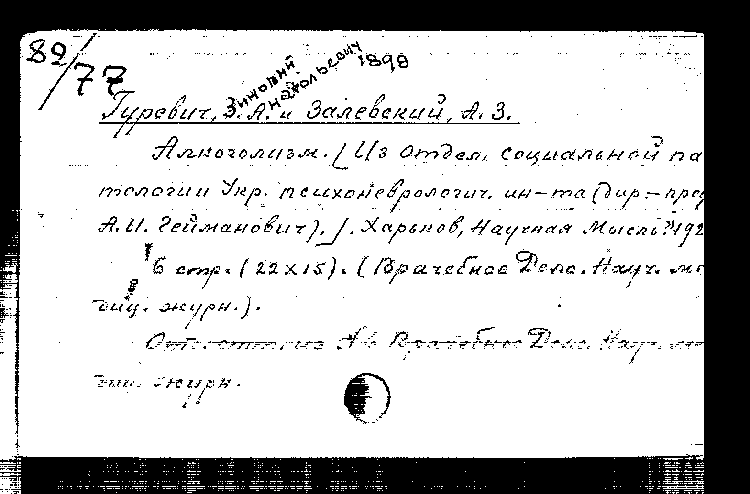 82/77
Зиновий Анатольевич 1898
Гуревич, З. А. и Залевский, А. З.
Алкоголизм. [Из отдел. социальной па
тологии Укр. психоневрологич. ин-та (дир. - про
А. И. Гейманович).]. Харьков, Научная Мысль, 192
6 стр. (22x15). (Врачебное Дело. Науч. ме
диц. журн.).
Отд. отт. из № Врачебное Дело. Науч. ме
диц. журн.